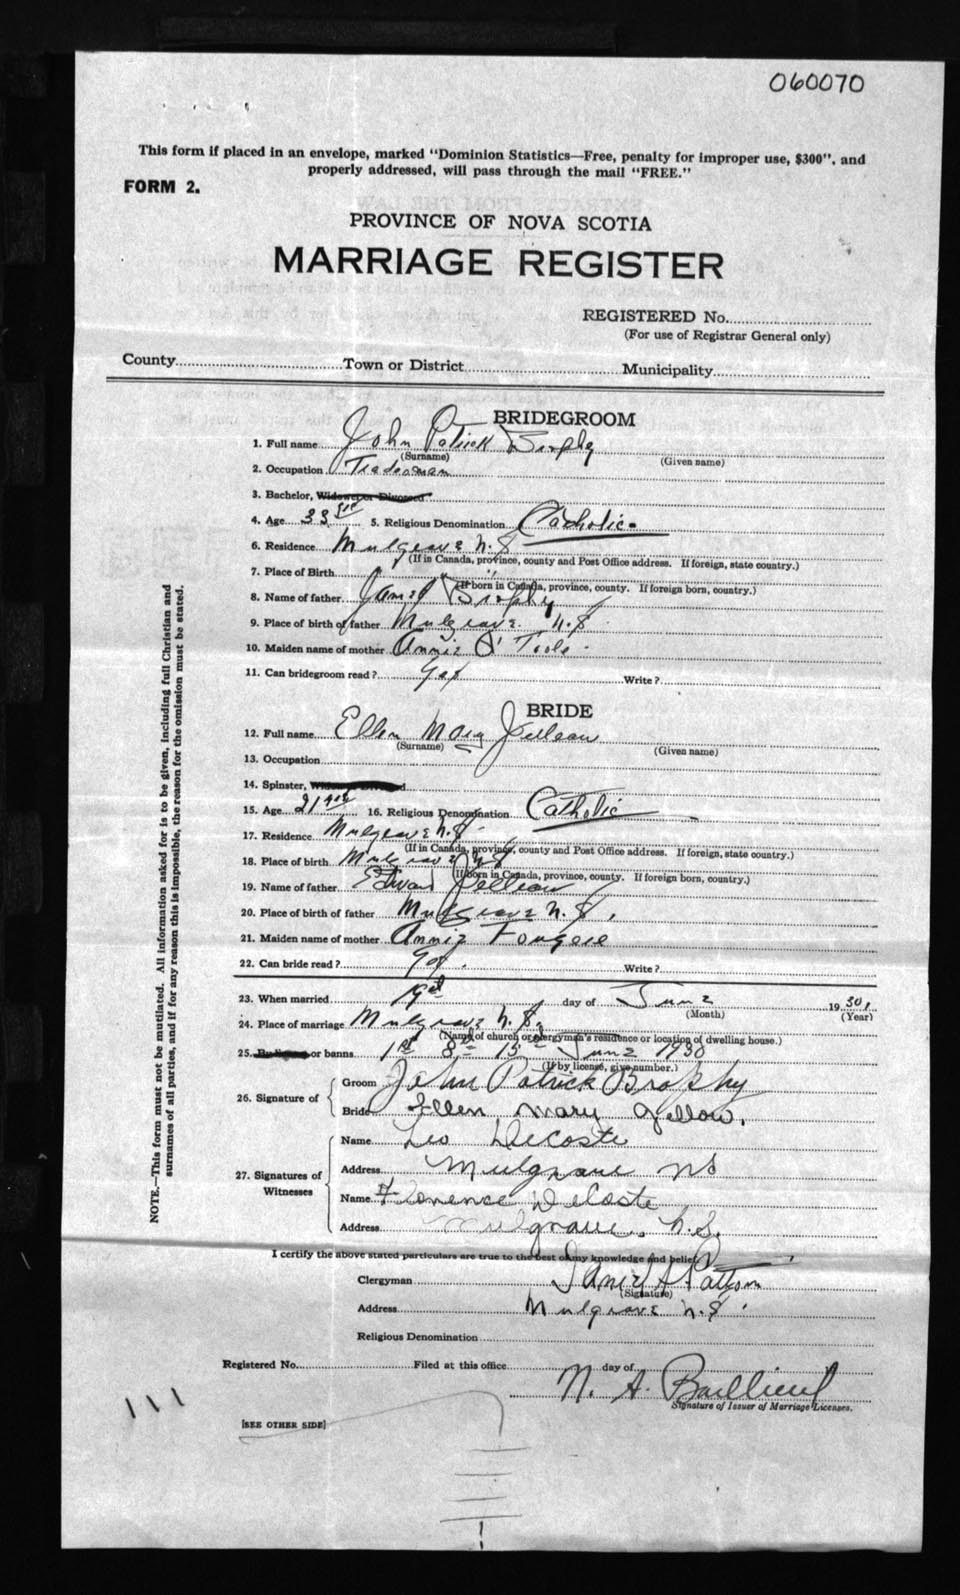 060070
This form if placed in an envelope, marked "Dominion Statistics—Free, penalty for improper use, $300", and
properly addressed, will pass through the mail "FREE."
FORM 2.
PROVINCE OF NOVA SCOTIA
MARRIAGE REGISTER
REGISTERED No.
(For use of Registrar General only)
County Town or District Municipality
BRIDEGROOM
1. Full name John Patrick Brophy
(Surname) (Given name)
2. Occupation Tradesman
3. Bachelor, Widower or Divorced
4. Age 33 5. Religious Denomination Catholic
6. Residence Mulgrave N.S
(If in Canada, province, county and Post Office address. If foreign, state country.)
7. Place of Birth " "
(If born in Canada, province, county. If foreign born, country.)
8. Name of father James Brophy
9. Place of birth of father Mulgrave. N.S.
10. Maiden name of mother Annie O'Toole
11. Can bridegroom read? Yes Write?
BRIDE
12. Full name Ellen Mary Jelleau
(Surname) (Given name)
13. Occupation
14. Spinster,
15. Age 21 yrs 16. Religious Denomination Catholic
17. Residence Mulgrave N.S.
(If in Canada, province, county and Post Office address. If foreign, state country.)
18. Place of birth Mulgrave N.S
(If born in Canada, province, county. If foreign born, country.)
19. Name of father Edward Jelleau
20. Place of birth of father Mulgrave N.S.
21. Maiden name of mother Annie Fougere
22. Can bride read? Yes. Write?
23. When married 19th day of June 1930
(Month) (Year)
24. Place of marriage Mulgrave N.S.
(Name of church or clergyman's residence or location of dwelling house.)
25. or banns 1st 8th 15th June 1930
(If by license, give number.)
26. Signature of
Groom John Patrick Brophy
Bride Ellen Mary Jellow.
27. Signatures of Witnesses
Name Leo DeCoste
Address Mulgrave NS
Name Florence DeCoste
Address Mulgrave, N.S.
I certify the above stated particulars are true to the best of my knowledge and belief
Clergyman Pattom
(Signature)
Address Mulgrave N.S.
Religious Denomination
Registered No. Filed at this office day of
N. A.
Signature of Issuer of Marriage Licenses.
[SEE OTHER SIDE]
NOTE.—This form must not be mutilated. All information asked for is to be given, including full Christian and
surnames of all parties, and if for any reason this is impossible, the reason for the omission must be stated.